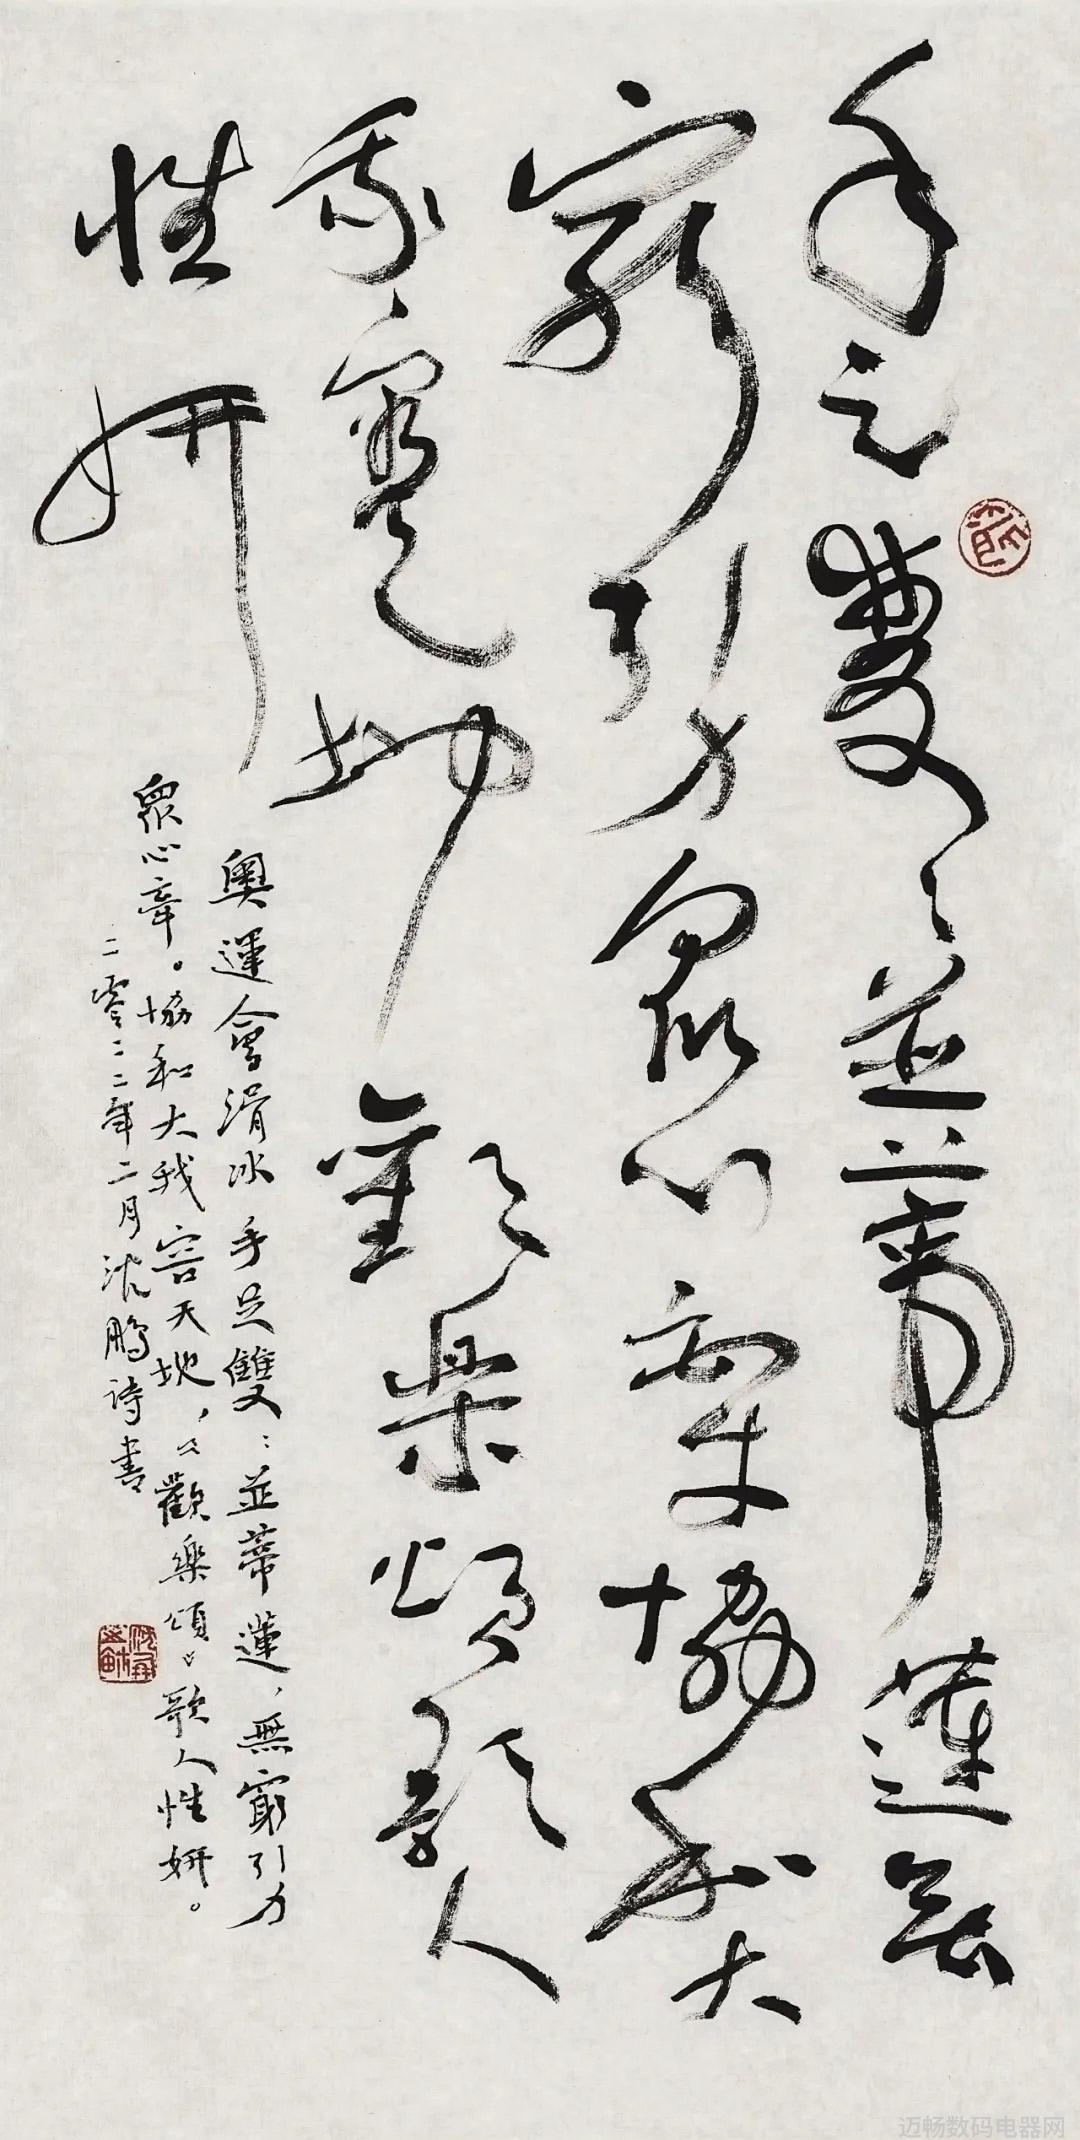 手足雙〻並蒂蓮無
窮引力衆心牽協和大
我容天地歡樂頌歌人
性妍
奧運會滑冰手足雙〻並蒂蓮，無窮引力
衆心牽。協和大我容天地，《歡樂頌》歌人性妍。
二零二二年二月沈鵬詩書
迈畅数码电器网